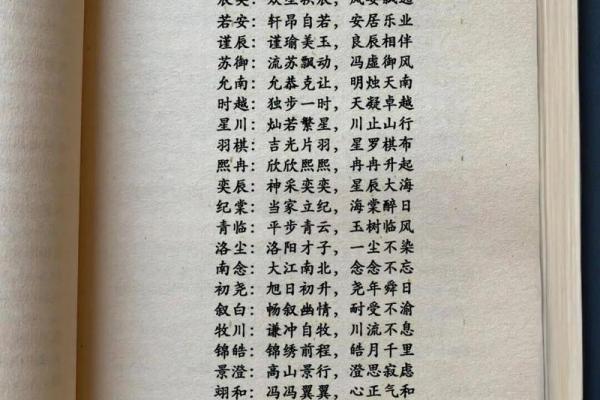 若安：轩昂自若，安居乐业
谨辰：谨瑜美玉，良辰相伴
苏御：流苏飘动，冯虚御风
允南：允恭克让，明烛天南
时越：独步一时，天凝卓越
星川：灿若繁星，川止山行
羽棋：吉光片羽，星罗棋布
熙冉：欣欣熙熙，冉冉升起
奕辰：神采奕奕，星辰大海
纪棠：当家立纪，海棠醉日
青临：平步青云，玉树临风
洛尘：洛阳才子，一尘不染
南念：大江南北，念念不忘
初尧：旭日初升，尧年舜日
叙白：畅叙幽情，耐受不渝
牧川：谦冲自牧，川流不息
锦皓：锦绣前程，皓月千里
景澄：高山景行，澄思寂虑
翊和：冯冯翼翼，心正气和